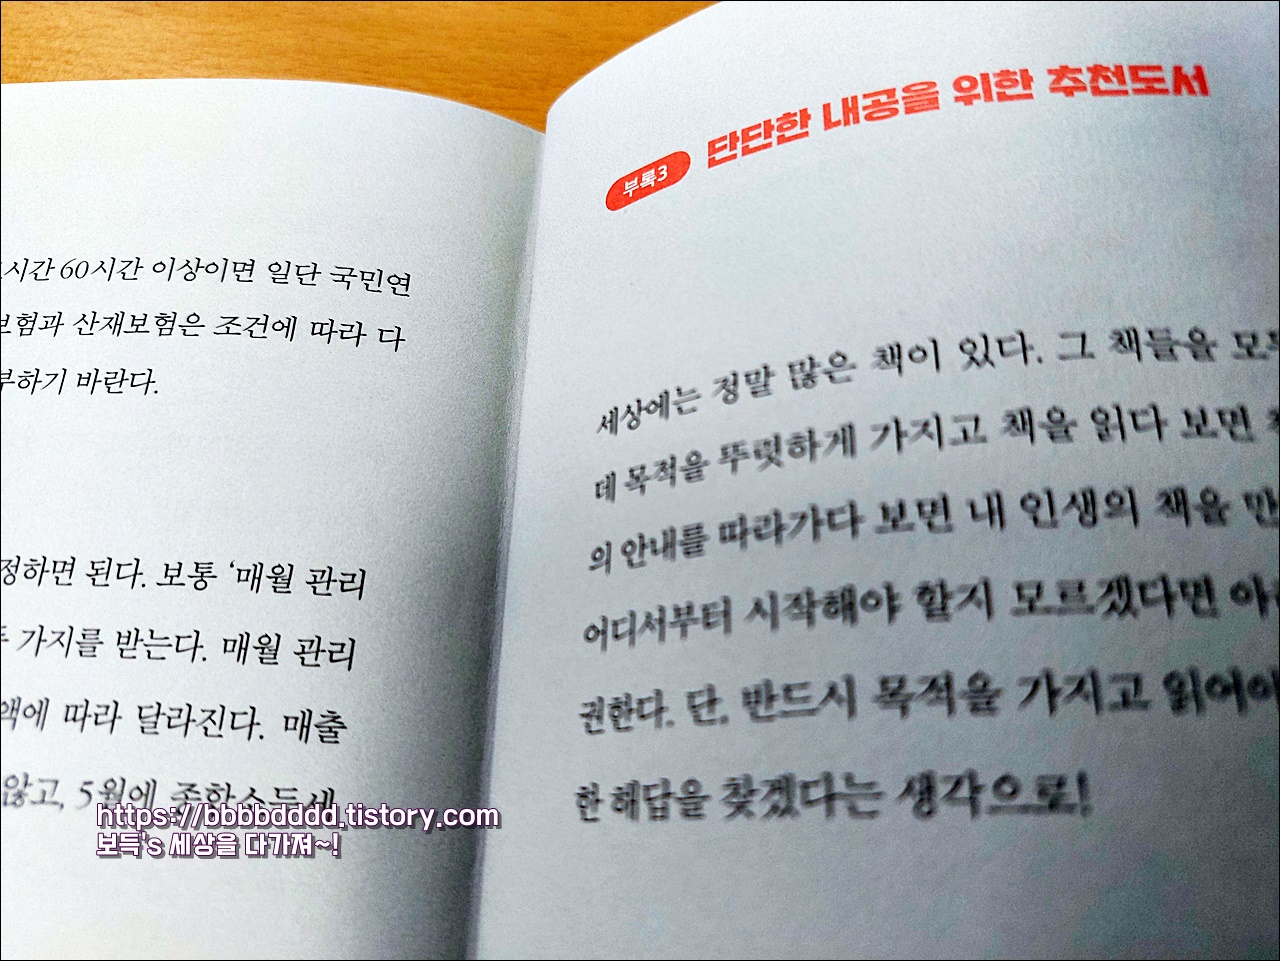 시간 60시간 이상이면 일단 국민연
보험과 산재보험은 조건에 따라 다
부하기 바란다.
정하면 된다. 보통 ‘매월 관리
가지를 받는다. 매월 관리
액에 따라 달라진다. 매출
않고, 5월에 종합소득세
https://bbbbdddd.tistory.com
보득's 세상을 다가져~!
부록3 단단한 내공을 위한 추천도서
세상에는 정말 많은 책이 있다. 그 책들을 모두
데 목적을 뚜렷하게 가지고 책을 읽다 보면
의 안내를 따라가다 보면 내 인생의 책을 만
어디서부터 시작해야 할지 모르겠다면
권한다. 단, 반드시 목적을 가지고 읽어야
한 해답을 찾겠다는 생각으로!